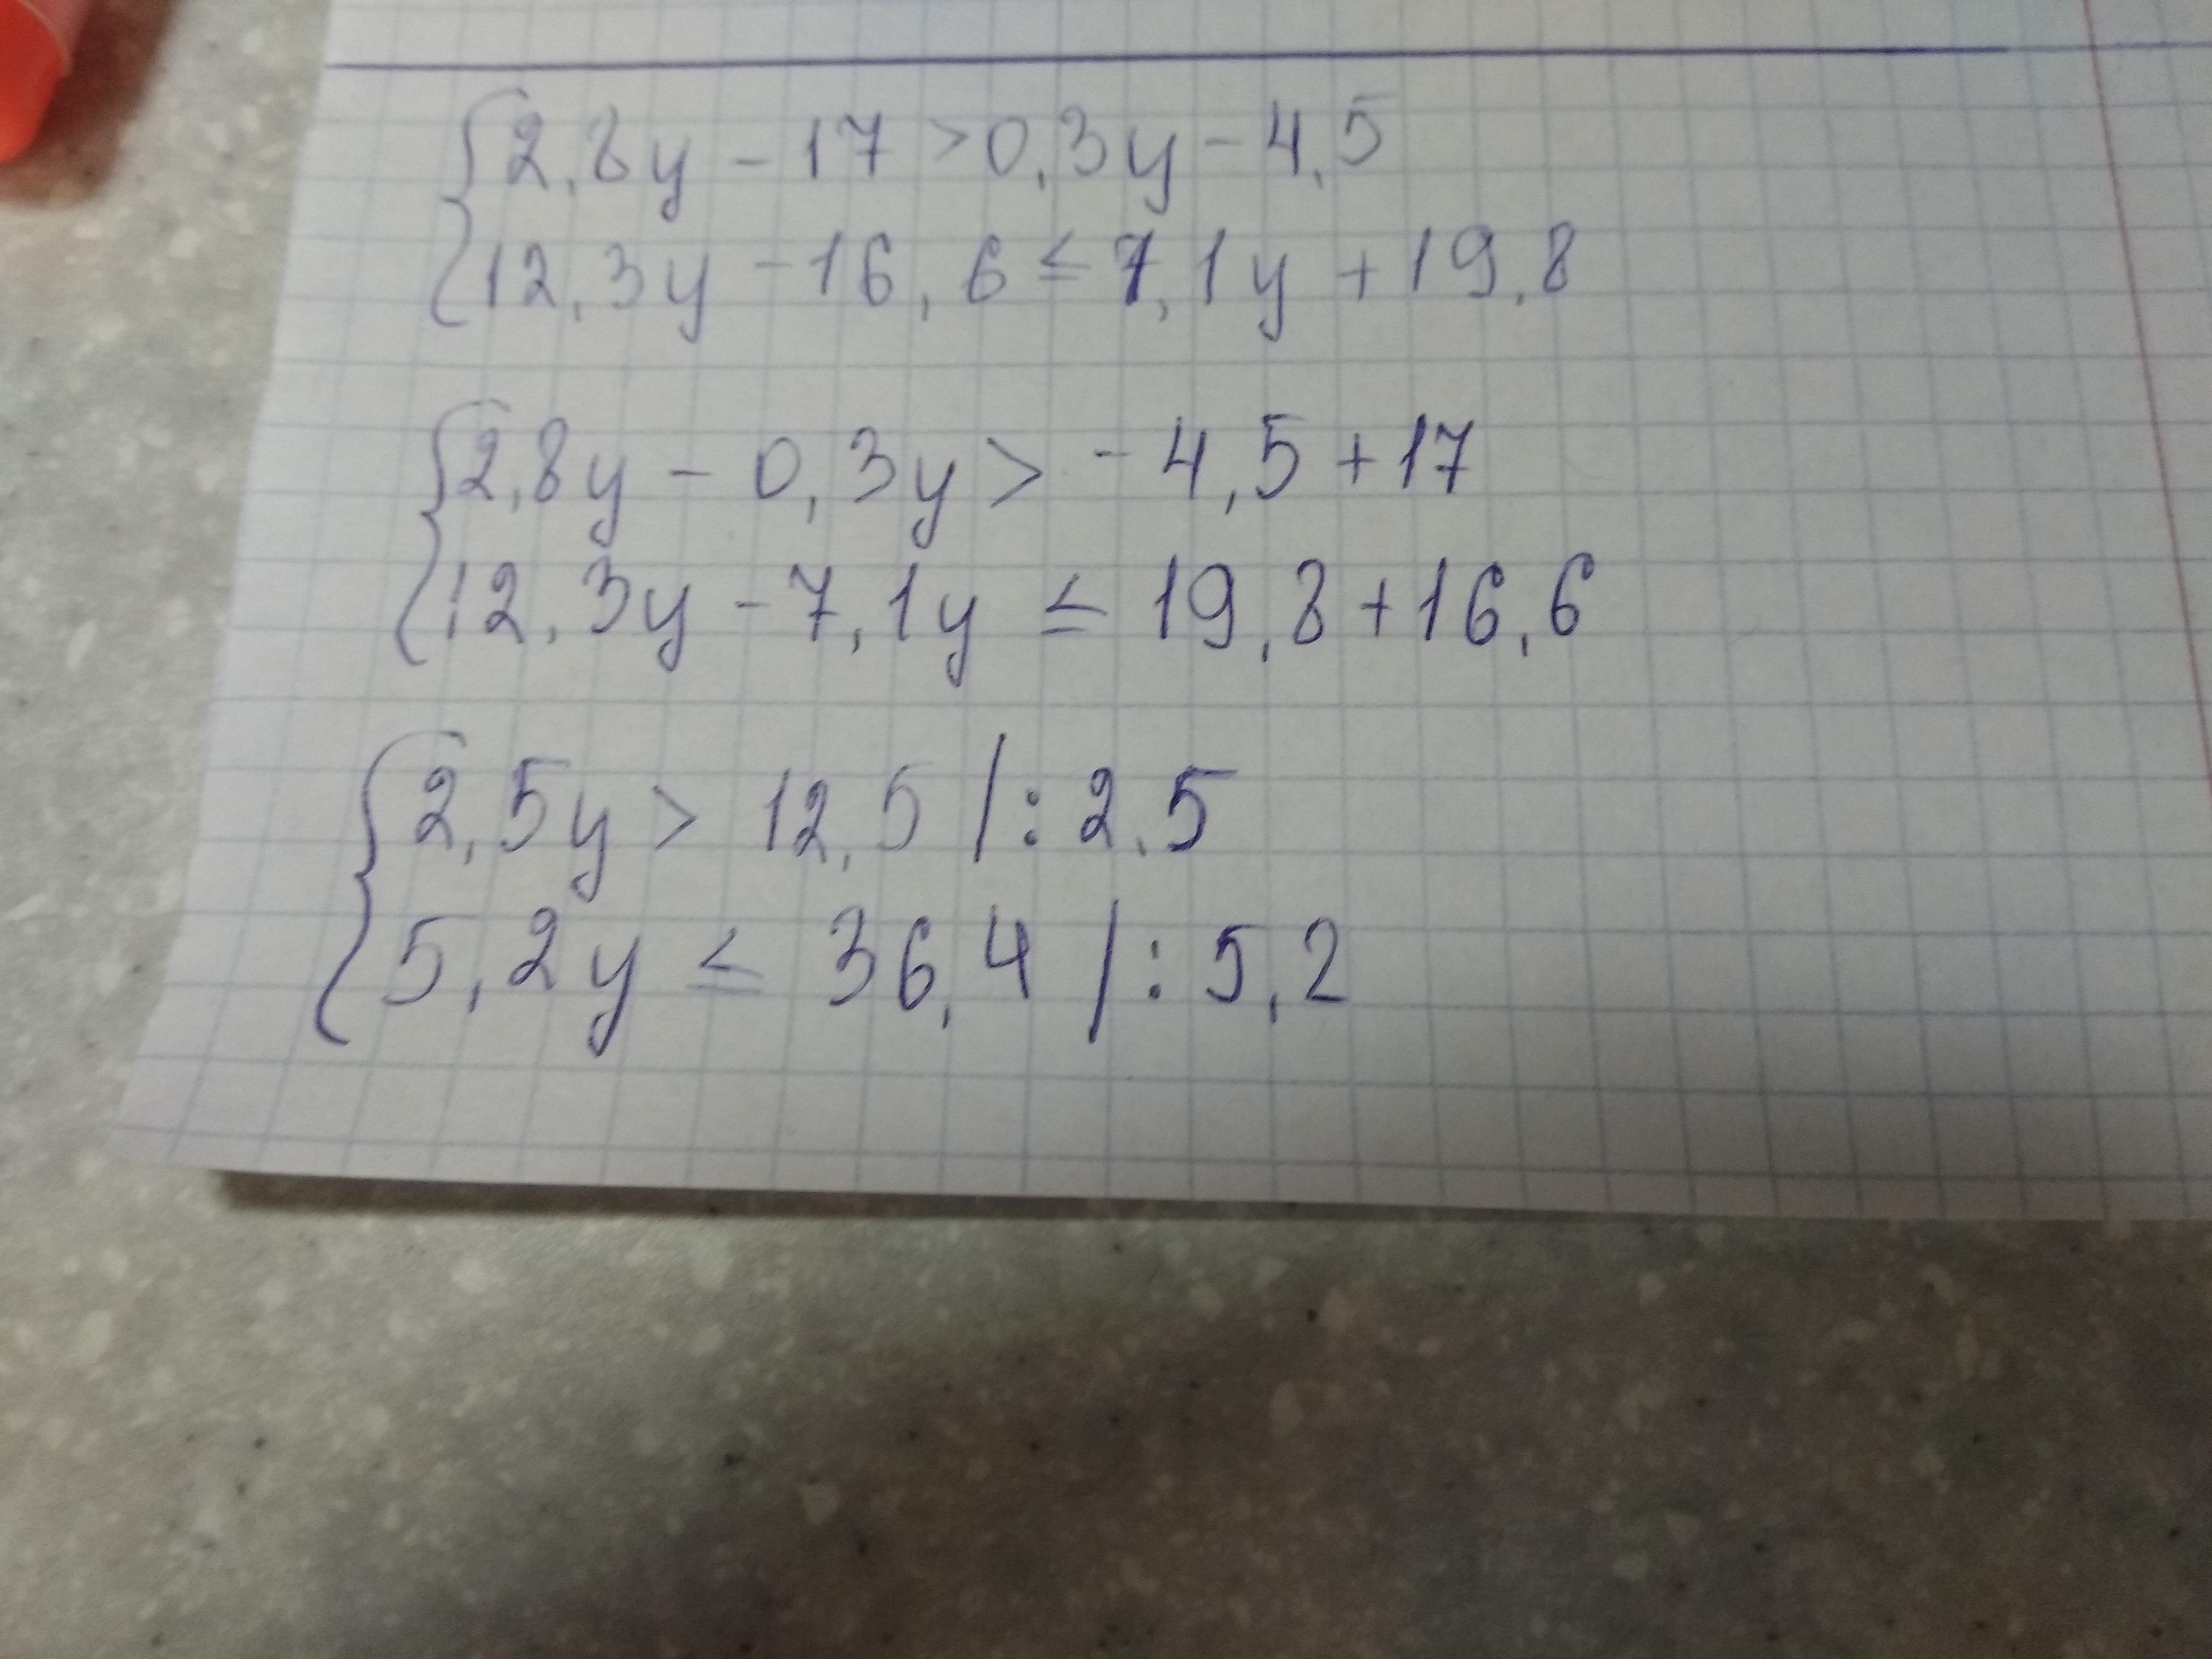 {2,8y - 17 > 0,3y - 4,5
{12,3y - 16,6 ≤ 7,1y + 19,8
{2,8y - 0,3y > - 4,5 + 17
{12,3y - 7,1y ≤ 19,8 + 16,6
{2,5y > 12,5 |: 2.5
{5,2y ≤ 36,4 |: 5,2